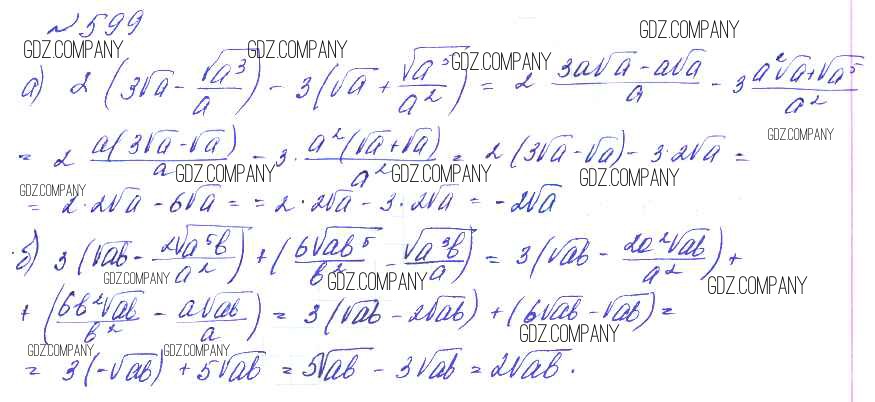 № 599
GDZ.COMPANY GDZ.COMPANY GDZ.COMPANY
а) 2 (3√a - √a³/a) - 3(√a + √a⁵/a²) = 2 (3a√a - a√a)/a - 3 (a²√a + √a⁵)/a²
GDZ.COMPANY
GDZ.COMPANY
= 2 a(3√a - √a)/a - 3 · a²(√a + √a)/a² = 2 (3√a - √a) - 3·2√a =
GDZ.COMPANY GDZ.COMPANY GDZ.COMPANY
GDZ.COMPANY
= 2·2√a - 6√a = = 2·2√a - 3·2√a = -2√a
б) 3 (√ab - 2√a⁵b/a²) + (6√ab⁵/b² - √a³b/a) = 3(√ab - 2a²√ab/a²) +
GDZ.COMPANY GDZ.COMPANY GDZ.COMPANY
+ (6b²√ab/b² - a√ab/a) = 3(√ab - 2√ab) + (6√ab - √ab) =
GDZ.COMPANY
GDZ.COMPANY GDZ.COMPANY
= 3(-√ab) + 5√ab = 5√ab - 3√ab = 2√ab.